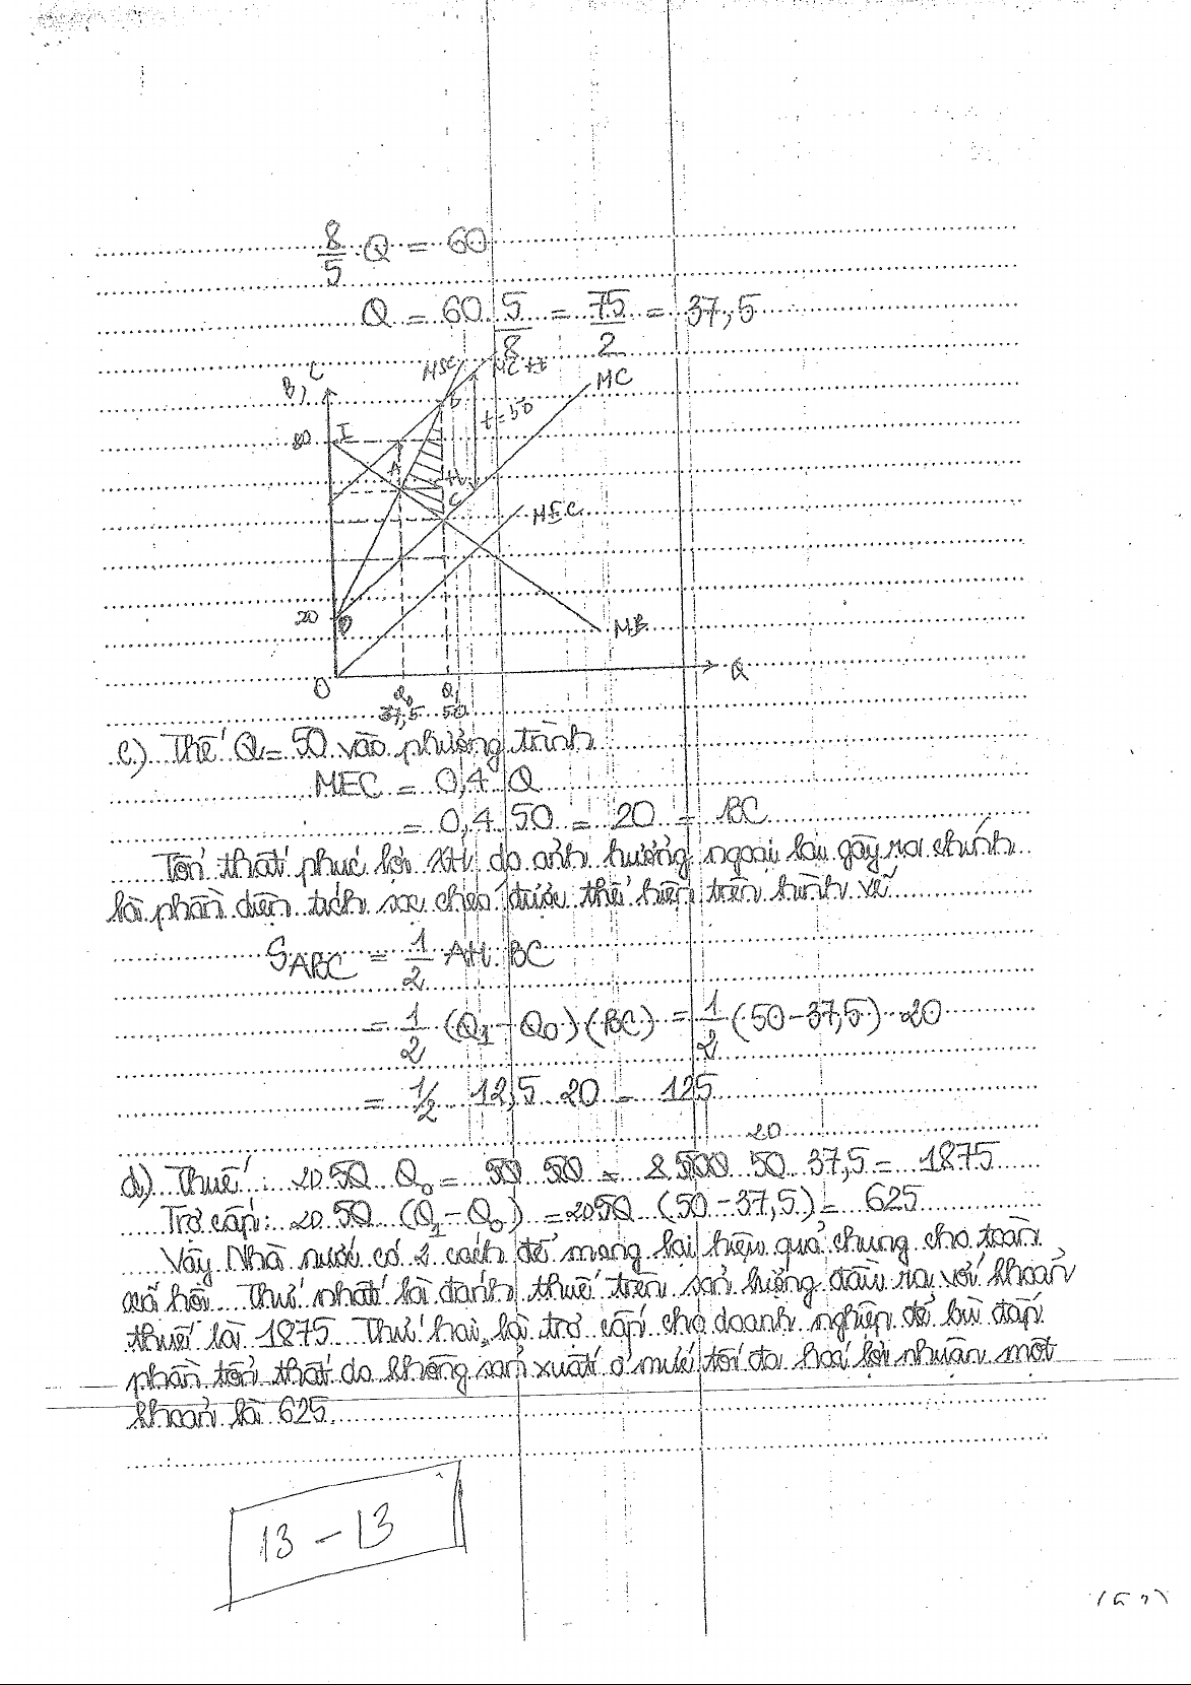 8/5 Q = 60
Q = 60 . 5/8 = 75/2 = 37,5
B, C
MSC
MC + t
MC
B
t = 50
80
I
A
H
C
MEC
20
D
MB
O
Q
Q₀ Q₁
37,5 50
c.) Thế Q = 50 vào phương trình
MEC = 0,4 Q
= 0,4 . 50 = 20 = BC
Tổn thất phúc lợi XH do ảnh hưởng ngoại lai gây ra chính
là phần diện tích sọc chéo được thể hiện trên hình vẽ
S_ABC = 1/2 AH . BC
= 1/2 (Q₁ - Q₀) (BC) = 1/2 (50 - 37,5) . 20
= 1/2 12,5 20 = 125
d) Thuế : 20 Q₀ = 20 37,5 = 1875
Trợ cấp : 20 (Q₁ - Q₀) = (50 - 37,5) = 625
Vậy Nhà nước có 2 cách để mang lại hiệu quả chung cho toàn
xã hội. Thứ nhất là đánh thuế trên sản lượng đầu ra với khoản
thuế là 1875. Thứ hai, là trợ cấp cho doanh nghiệp để bù đắp
phần tổn thất do không sản xuất ở mức tối đa hoá lợi nhuận một
khoản là 625.
13 - 13